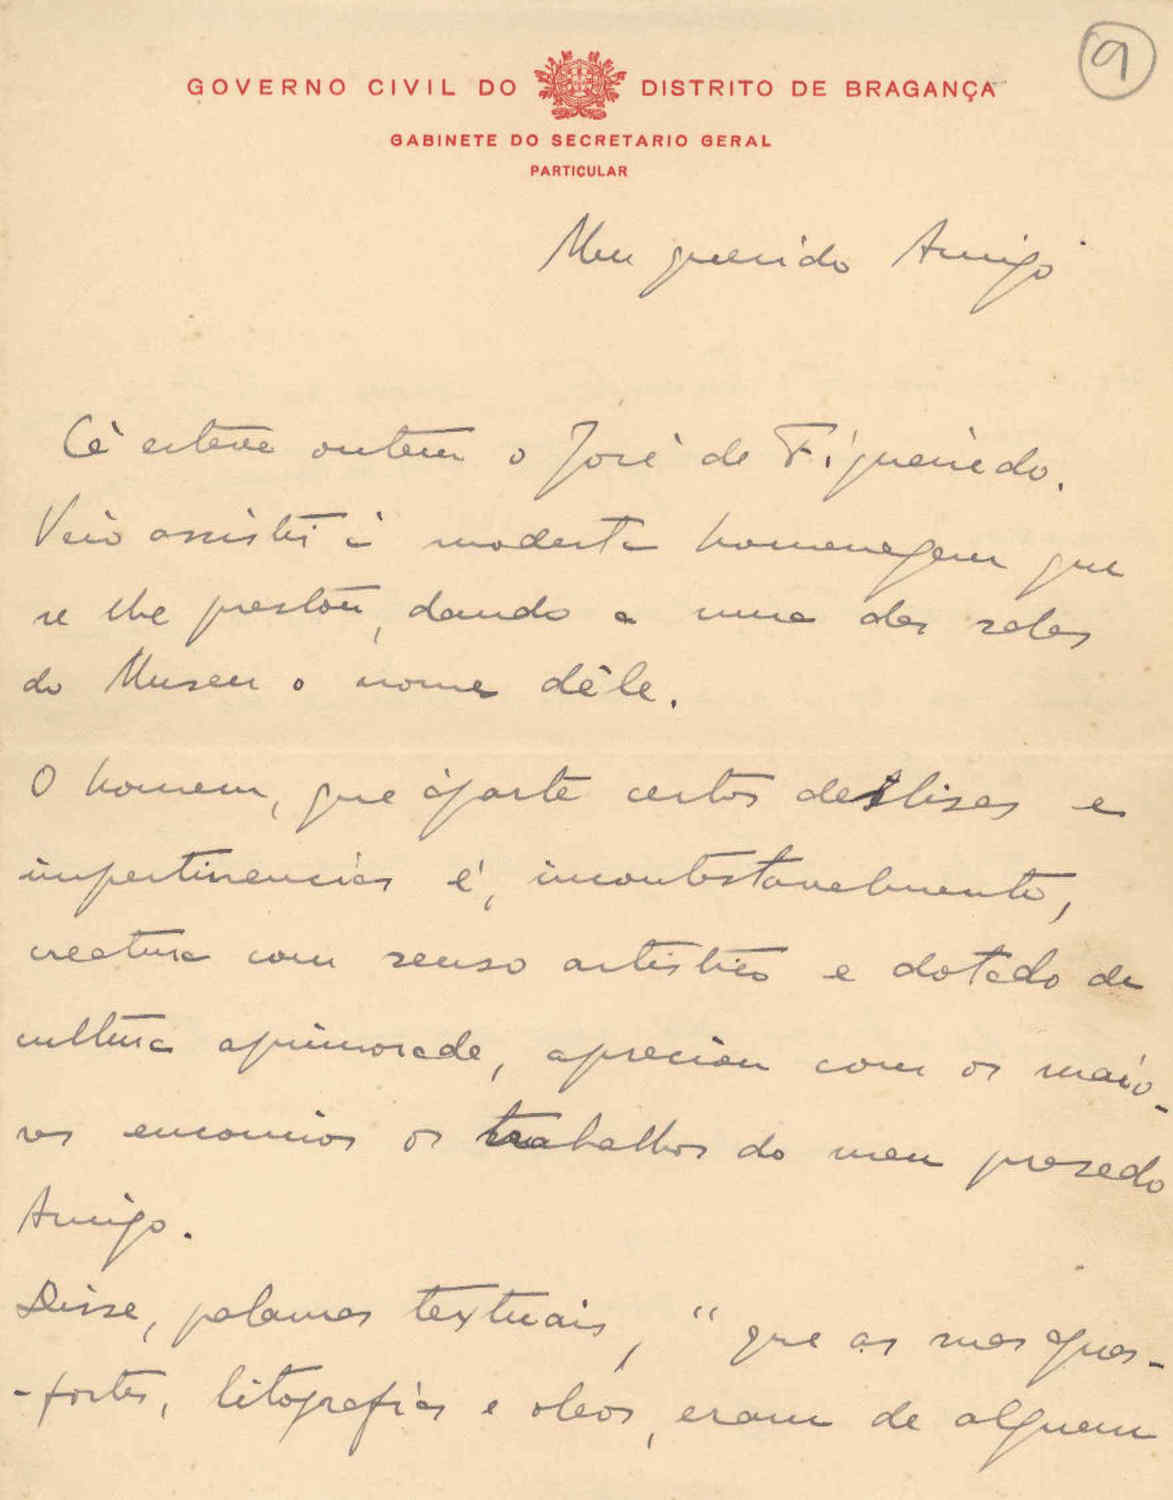 9
GOVERNO CIVIL DO DISTRITO DE BRAGANÇA
GABINETE DO SECRETARIO GERAL
PARTICULAR
Meu querido Amigo
Cá esteve ontem o José de Figueiredo.
Veio assistir á modesta homenagem que
se lhe prestou, dando a uma das salas
do Museu o nome dêle.
O homem, que áparte certos deslises e
impertinencias é, incontestavelmente,
creatura com senso artistico e dotado de
cultura aprimorada, apreciou com os maio-
res encomios os trabalhos do meu prezado
Amigo.
Disse, palavras textuais, "que as suas aguas-
-fortes, litografias e oleos, eram de alguem